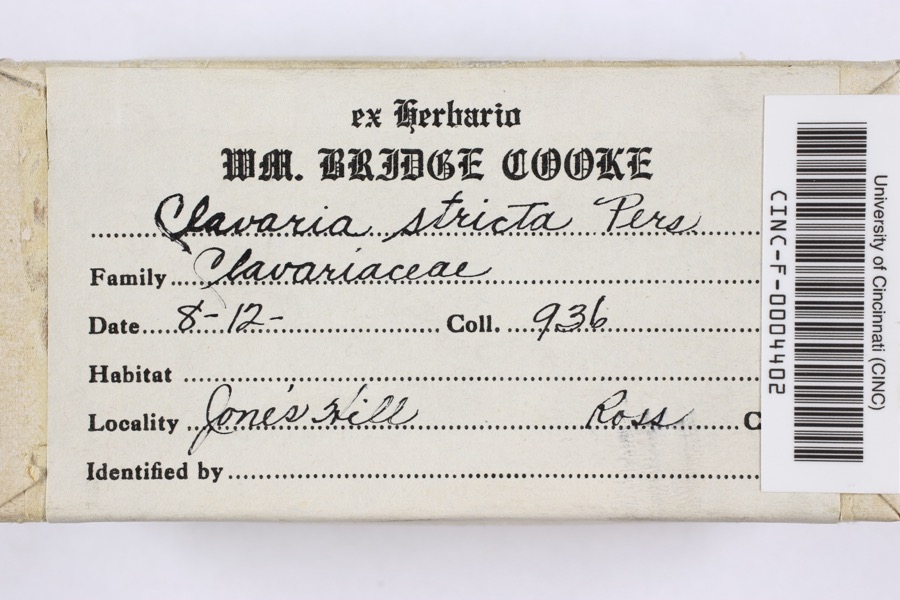 ex Herbario
WM. BRIDGE COOKE
Clavaria stricta Pers
Family Clavariaceae
Date 8-12- Coll. 936
Habitat
Locality Jone's Hill Ross C
Identified by
CINC-F-0004402
University of Cincinnati (CINC)